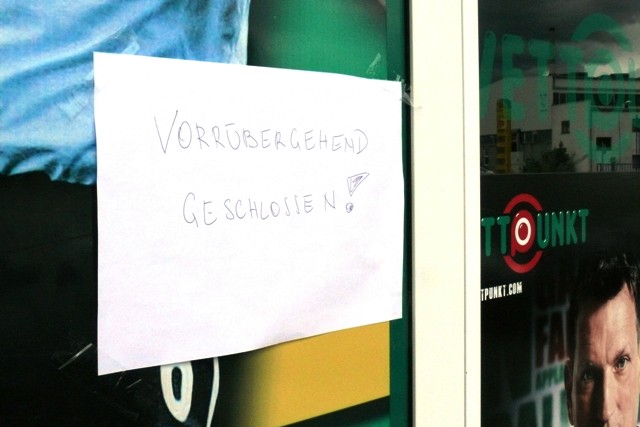 VORRÜBERGEHEND
GESCHLOSSEN!
WETT
TTPUNKT
TPUNKT.COM